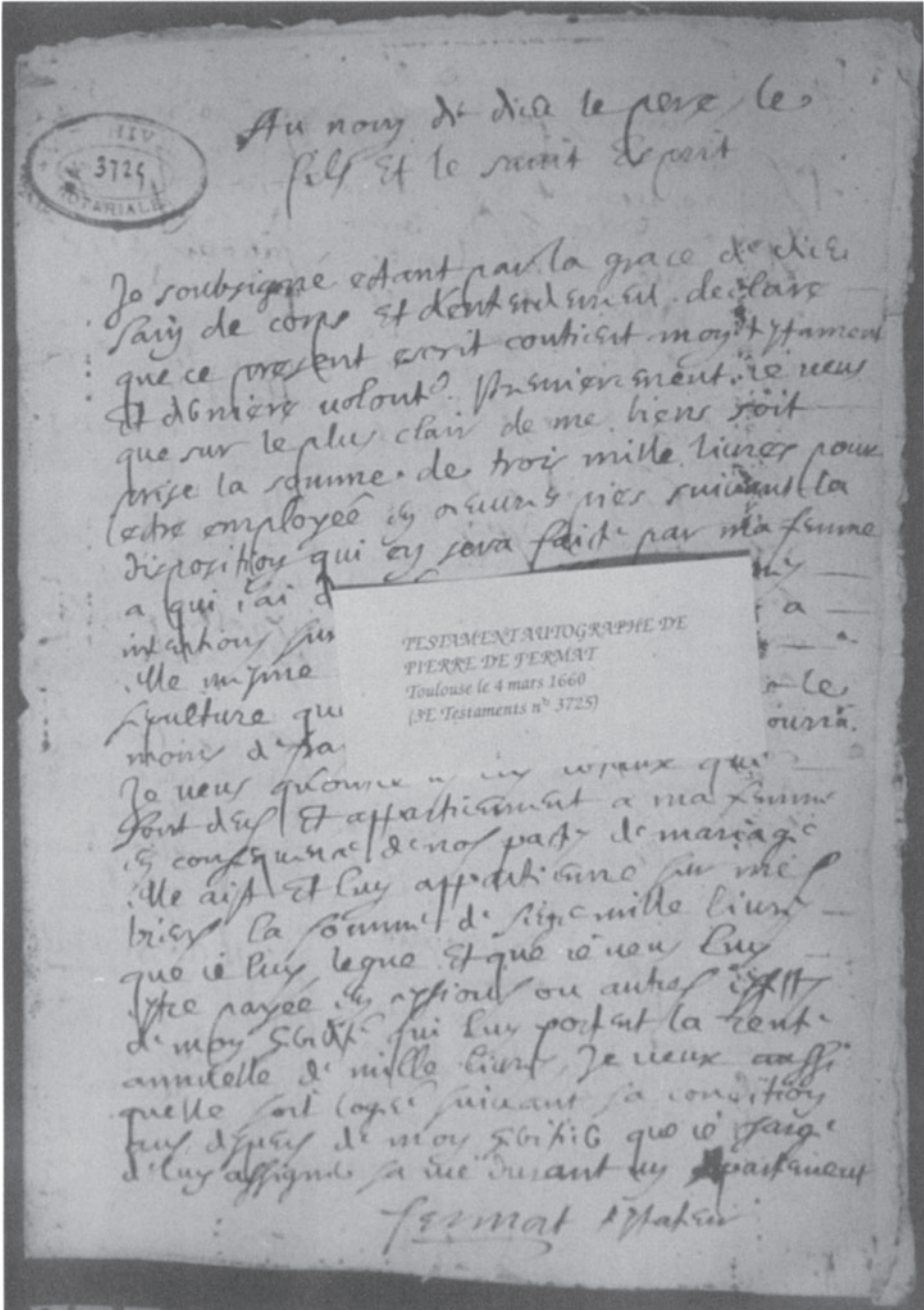 Au nom de dieu le pere le
fils Et le saint Esprit
HIV
3725
NOTARIALE
Je soubsigné estant par la grace de dieu
sain de corps Et d'entendement declare
que ce present escrit contient mon testament
Et derniere volonté. Premierement ie veus
que sur le plus clair de me biens soit
prise la somme de trois mille livres pour
estre employée en oeuvres pies suivant la
disposition qui en sera faite par ma femme
a qui i'ai
intentions sur a
elle mesme
sepulture que le
moins de ourra.
Je veus qui
sont deus Et appartiennent a ma femme
en consequence de nos pacts de mariage
elle ait Et luy appartienne sur mes
biens la somme de seize mille livres
que ie luy legue Et que ie veus luy
estre payée en ou autres
de mon qui luy portent la rente
annuelle de mille livres, Je veux aussi
quelle soit logée suivant sa condition
aux depens de mon que ie charge
de luy assigner sa vie durant un appartement
fermat testateur
TESTAMENT AUTOGRAPHE DE
PIERRE DE FERMAT
Toulouse le 4 mars 1660
(3E Testaments n° 3725)